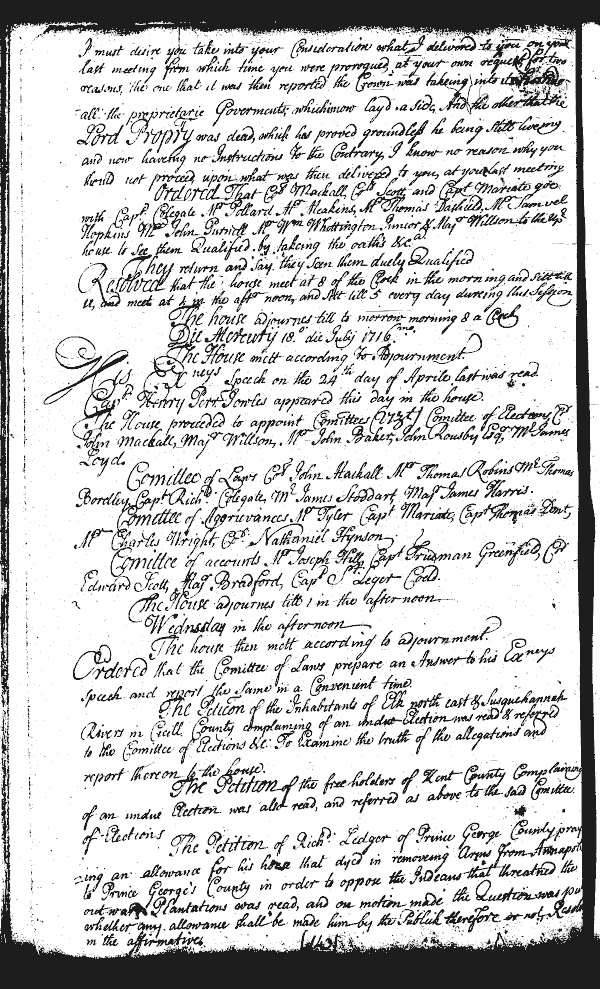 I must desire you take into your Consideration what I delivered to you on your
last meeting from which time you were prorogued at your own request for two
reasons, the one that it was then reported the Crown was takeing into it
all the proprietarie Goverments, which now layd a Side, And the other that the
Lord Propry was dead, which has proved groundless he being still liveing
and now haveing no Instructions to the Contrary, I know no reason why you
should not proceed upon what was then delivered to you, at your last meeting
Ordered That Coll Mackall, Coll Scott, and Capt Mariate goe
with Capt Colegate Mr Pollard Mr Meakins, Mr Thomas Tasfield Mr Samvel
Hopkins Mr John Purnell Mr Wm Whittington Junior & Majr Willson to the upr
house to See them Qualified by takeing the oaths &ca
They return and Say they Seen them duely Qualified
Resolved that the house meet at 8 of the Clock in the morning and Sitt till
11, and meet at 2 in the aftr noon, and Sitt till 5 every day dureing this Session
The house adjournes till to morrow morning 8 a Clock
Die Mercurij 18.o die Julij 1716
The House mett according to Adjournment
His Exneys Speech on the 24th day of Aprile last was read
Capt Henry Pert Jowles appeared this day in the house.
The House proceeded to appoint Comittees [Vizt] Comittee of Elections Col
John Mackall, Majr Willson, Mr John Baker, John Rousby Esqr, Mr James
Loyd.
Comittee of Laws Coll John Mackall Mr Thomas Robins Mr Thomas
Bordley, Capt Richd Colegate, Mr James Stoddart Majr James Harris.
Comittee of Aggrievances Mr Tyler Capt Mariate, Capt Thomas Dent,
Mr Charles Wright Coll Nathaniel Hynson
Comittee of accounts Mr Joseph Hill, Capt Trueman Greenfield, Col
Edward Scott, Majr Bradford, Capt St Leger Codd.
The House adjournes till 1 in the afternoon
Wednesday in the afternoon
The house then mett according to adjournment.
Ordered that the Comittee of Laws prepare an Answer to his Exneys
Speech and report the Same in a Convenient time.
The Peticon of the Inhabitants of Elk north east & Susquehannah
Rivers in Cecill County complaining of an undue Election was read & referred
to the Comittee of Elections &c To Examine the truth of the allegations and
report thereon to the house.
The Petition of the free holders of Kent County Complaining
of an undue Election was also read, and referred as above to the said Comittee
of Elections
The Petition of Richd Ledger of Prince George County pray
ing an allowance for his horse that dyed in removeing Arms from Annapolis
to Prince George's County in order to oppose the Indeans that threatned the
outward Plantations was read, and on motion made the Question was put
whether any allowance shall be made him by the Publick therefore or not, Resolv
in the affirmative.
[143]